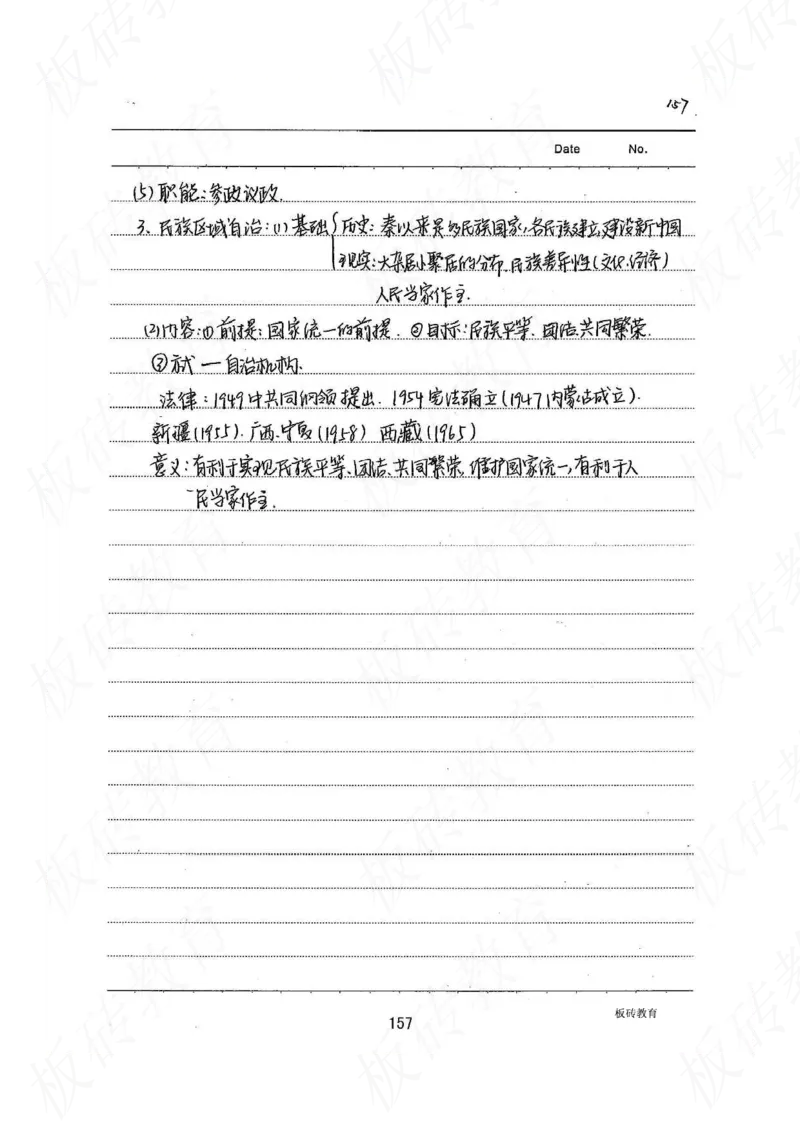 157
Date No.
(5)职能:参政议政.
3、民族区域自治:(1)基础{历史:秦以来是多民族国家,各民族建立,建设新中国
现实:大杂居小聚居的分布.民族差异性(文化.经济)
人民当家作主.
(2)内容:①前提:国家统一的前提. ②目标:民族平等、团结共同繁荣.
③方式—自治机构.
法律:1949中共同纲领提出. 1954宪法确立(1947内蒙古成立).
新疆(1955).广西.宁夏(1958) 西藏(1965)
意义:有利于实现民族平等、团结、共同繁荣.维护国家统一,有利于人
民当家作主.
157
板砖教育